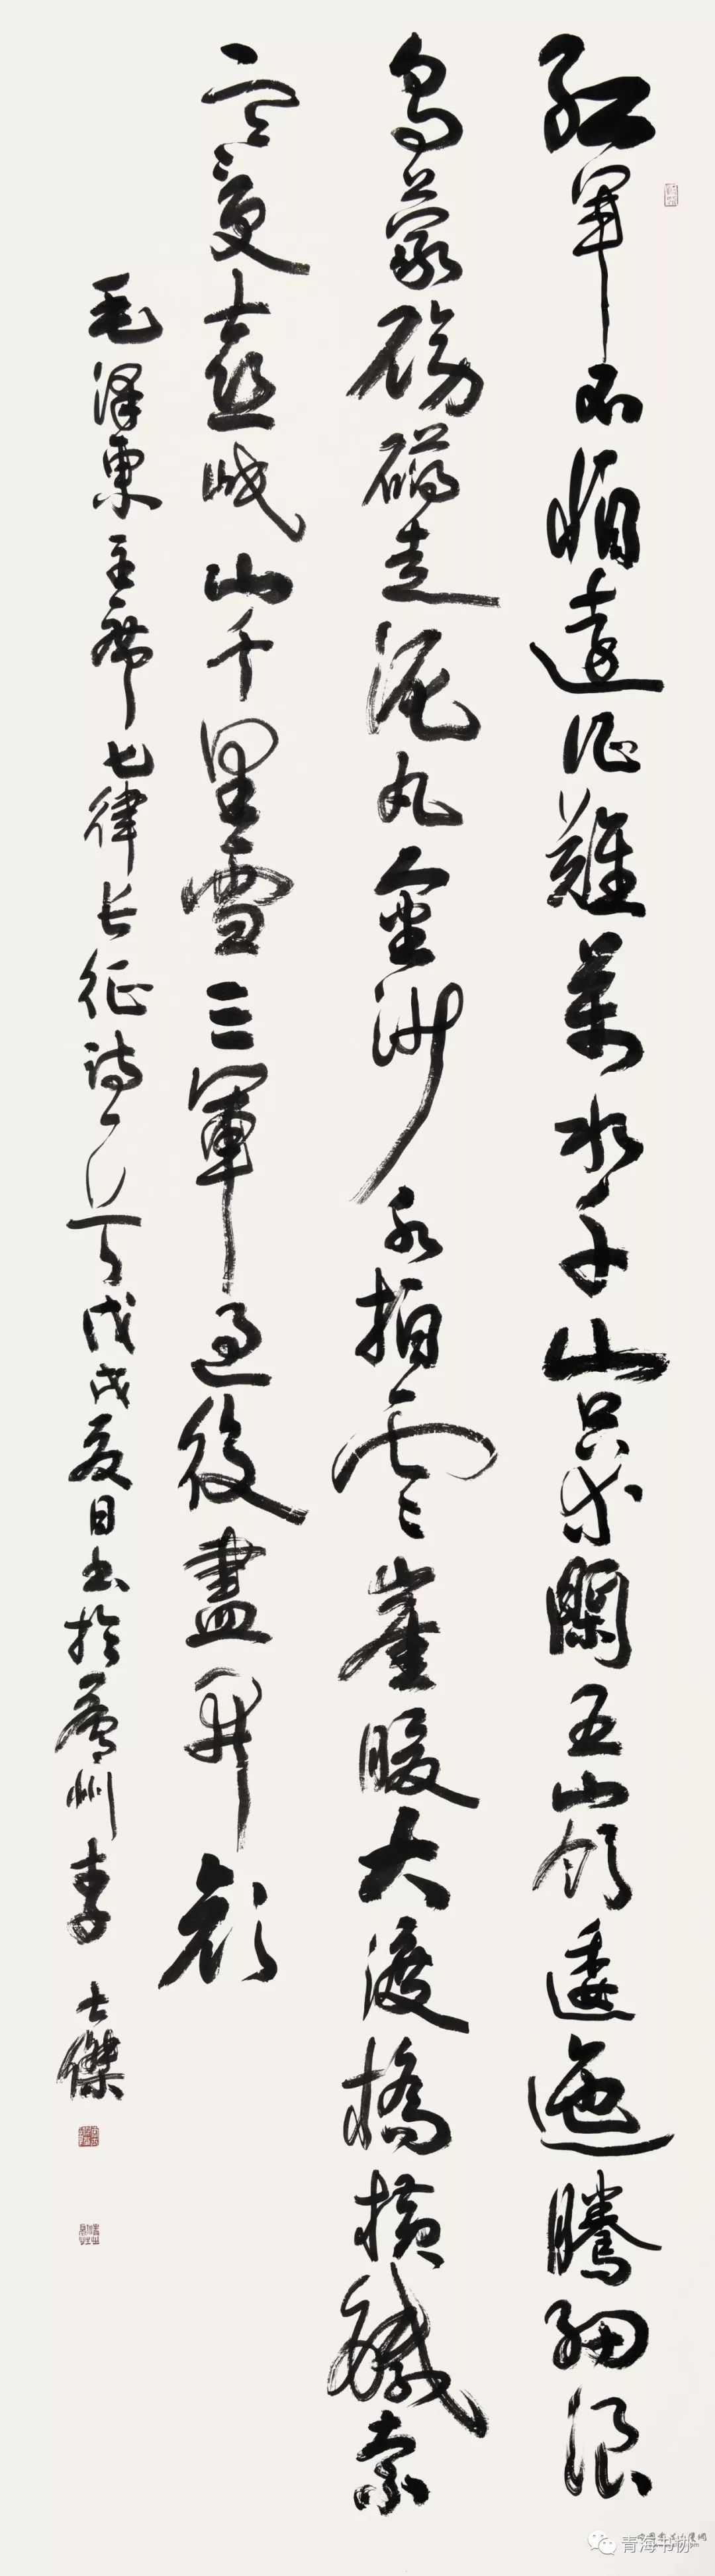 紅軍不怕遠征難萬水千山只等閑五嶺逶迤騰細浪
烏蒙磅礴走泥丸金沙水拍雲崖暖大渡橋橫鐵索
寒更喜岷山千里雪三軍過後盡開顏
毛澤東主席七律长征詩一首戊戌夏日書於州李士傑
青海书协